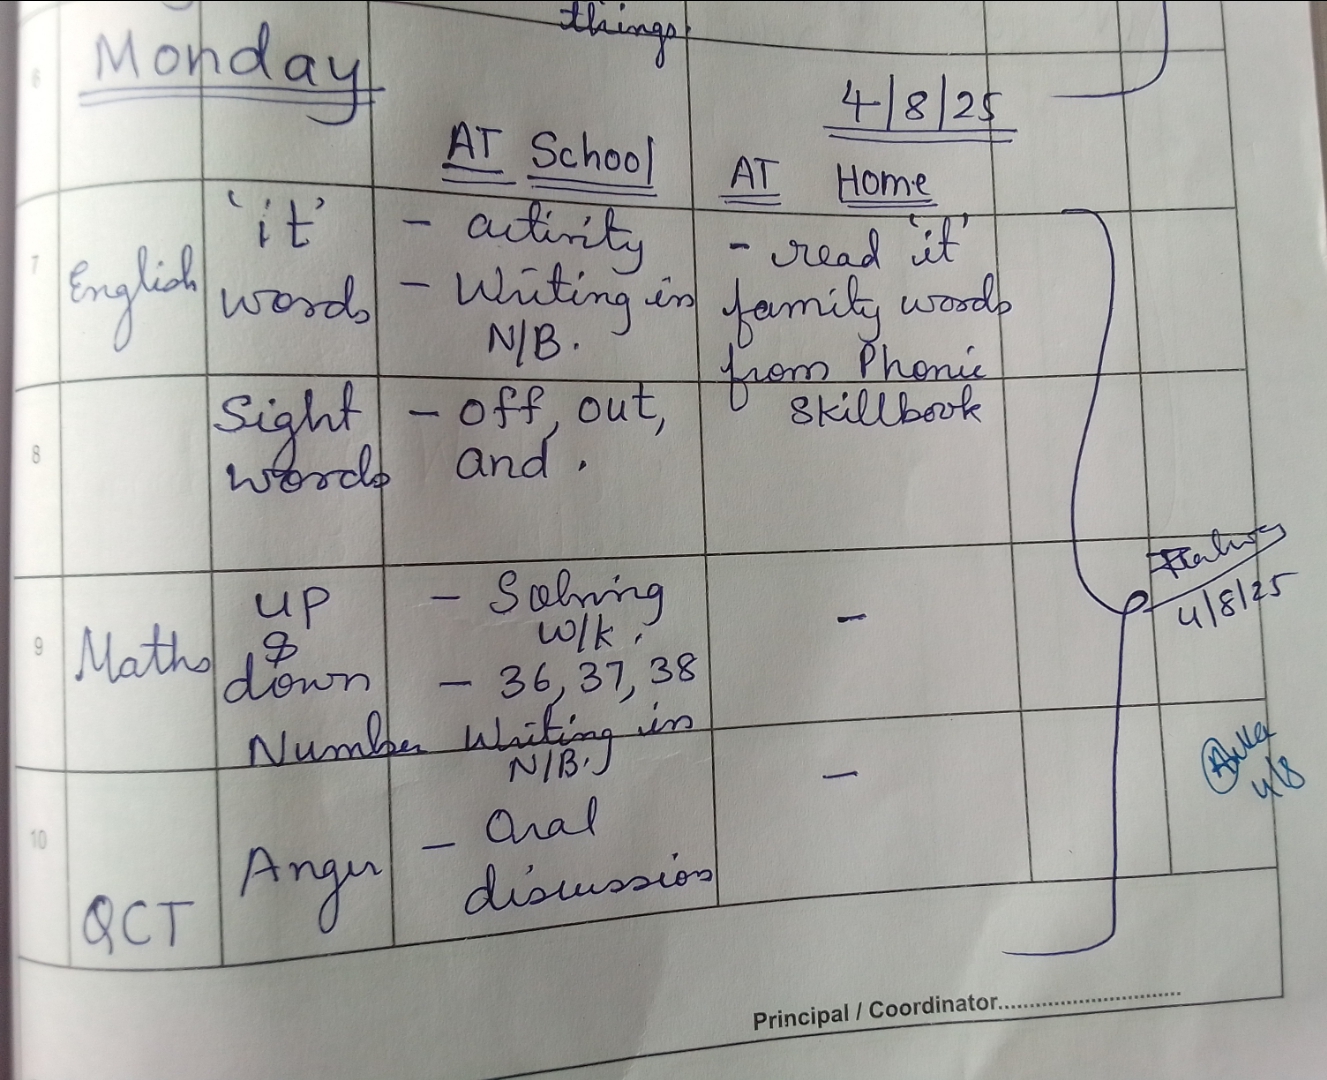 things.
6
Monday
4/8/25
AT School
AT Home
7
English
'it'
words
- activity
- Writing in
N/B.
- read 'it'
family words
from Phonic
Skillbook
8
Sight
words
- off, out,
and.
9
Maths
up
&
down
- Solving
W/k.
- 36, 37, 38
Number Writing in
N/B.
-
4/8/25
10
QCT
Anger
- Oral
discussion
-
4/8
Principal / Coordinator..............................